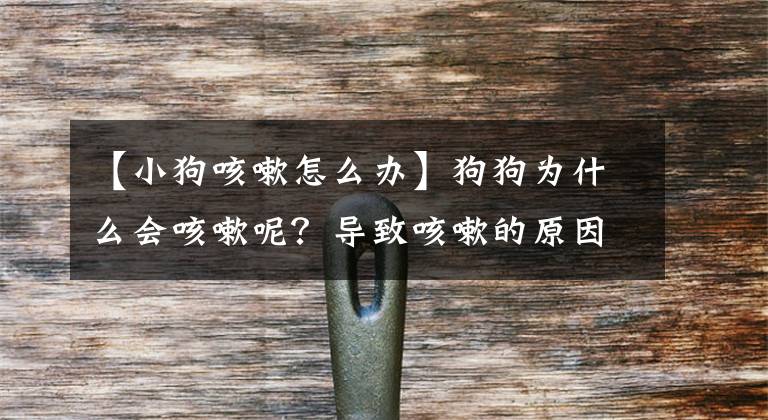 【小狗咳嗽怎么办】狗狗为什
么会咳嗽呢？导致咳嗽的原因